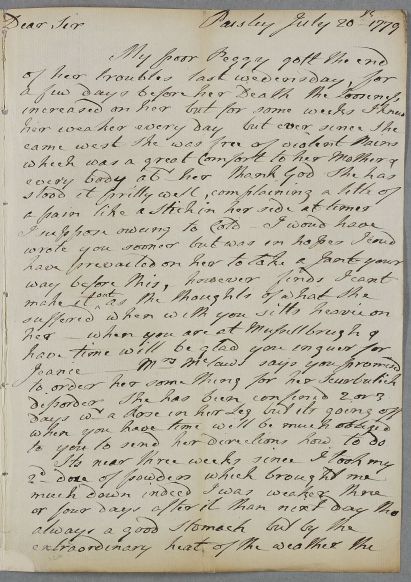 Dear Sir Paisley July 20th 1779
My poor Peggy gott the end
of her troubles last wedensday, for
a few days before her Death the Sooness
increased on her but for some weeks I knew
her weaker every day but ever since she
came west She was free of violent Pains
which was a great comfort to her Mother &
every body abt her thank God She has
stood it pritty well, complaining a little of
a pain like a stich in her side at times
I suppose owing to Cold – I woud have
wrote you sooner but was in hopes I coud
have prevailed on her to take a Jant your
way before this, however finds I cant
make it out as the thoughts of what She
suffered when with you sitts heavie on
her – when you are at Mussellbrugh &
have time will be glad you inquer for
Jeanie – Mrs McLaws says you promised
to order her some thing for her Scurbutick
disorder She has been confined 2 or 3
days wt a Rose in her Leg but its going off
when you have time will be much obliged
to you to send her directions how to do
Its near three weeks since I took my
2d dose of powders which brought me
much down indeed I was weaker three
or four days after it than next day tho
always a good stomach but by the
extraordinary heat of the weather the